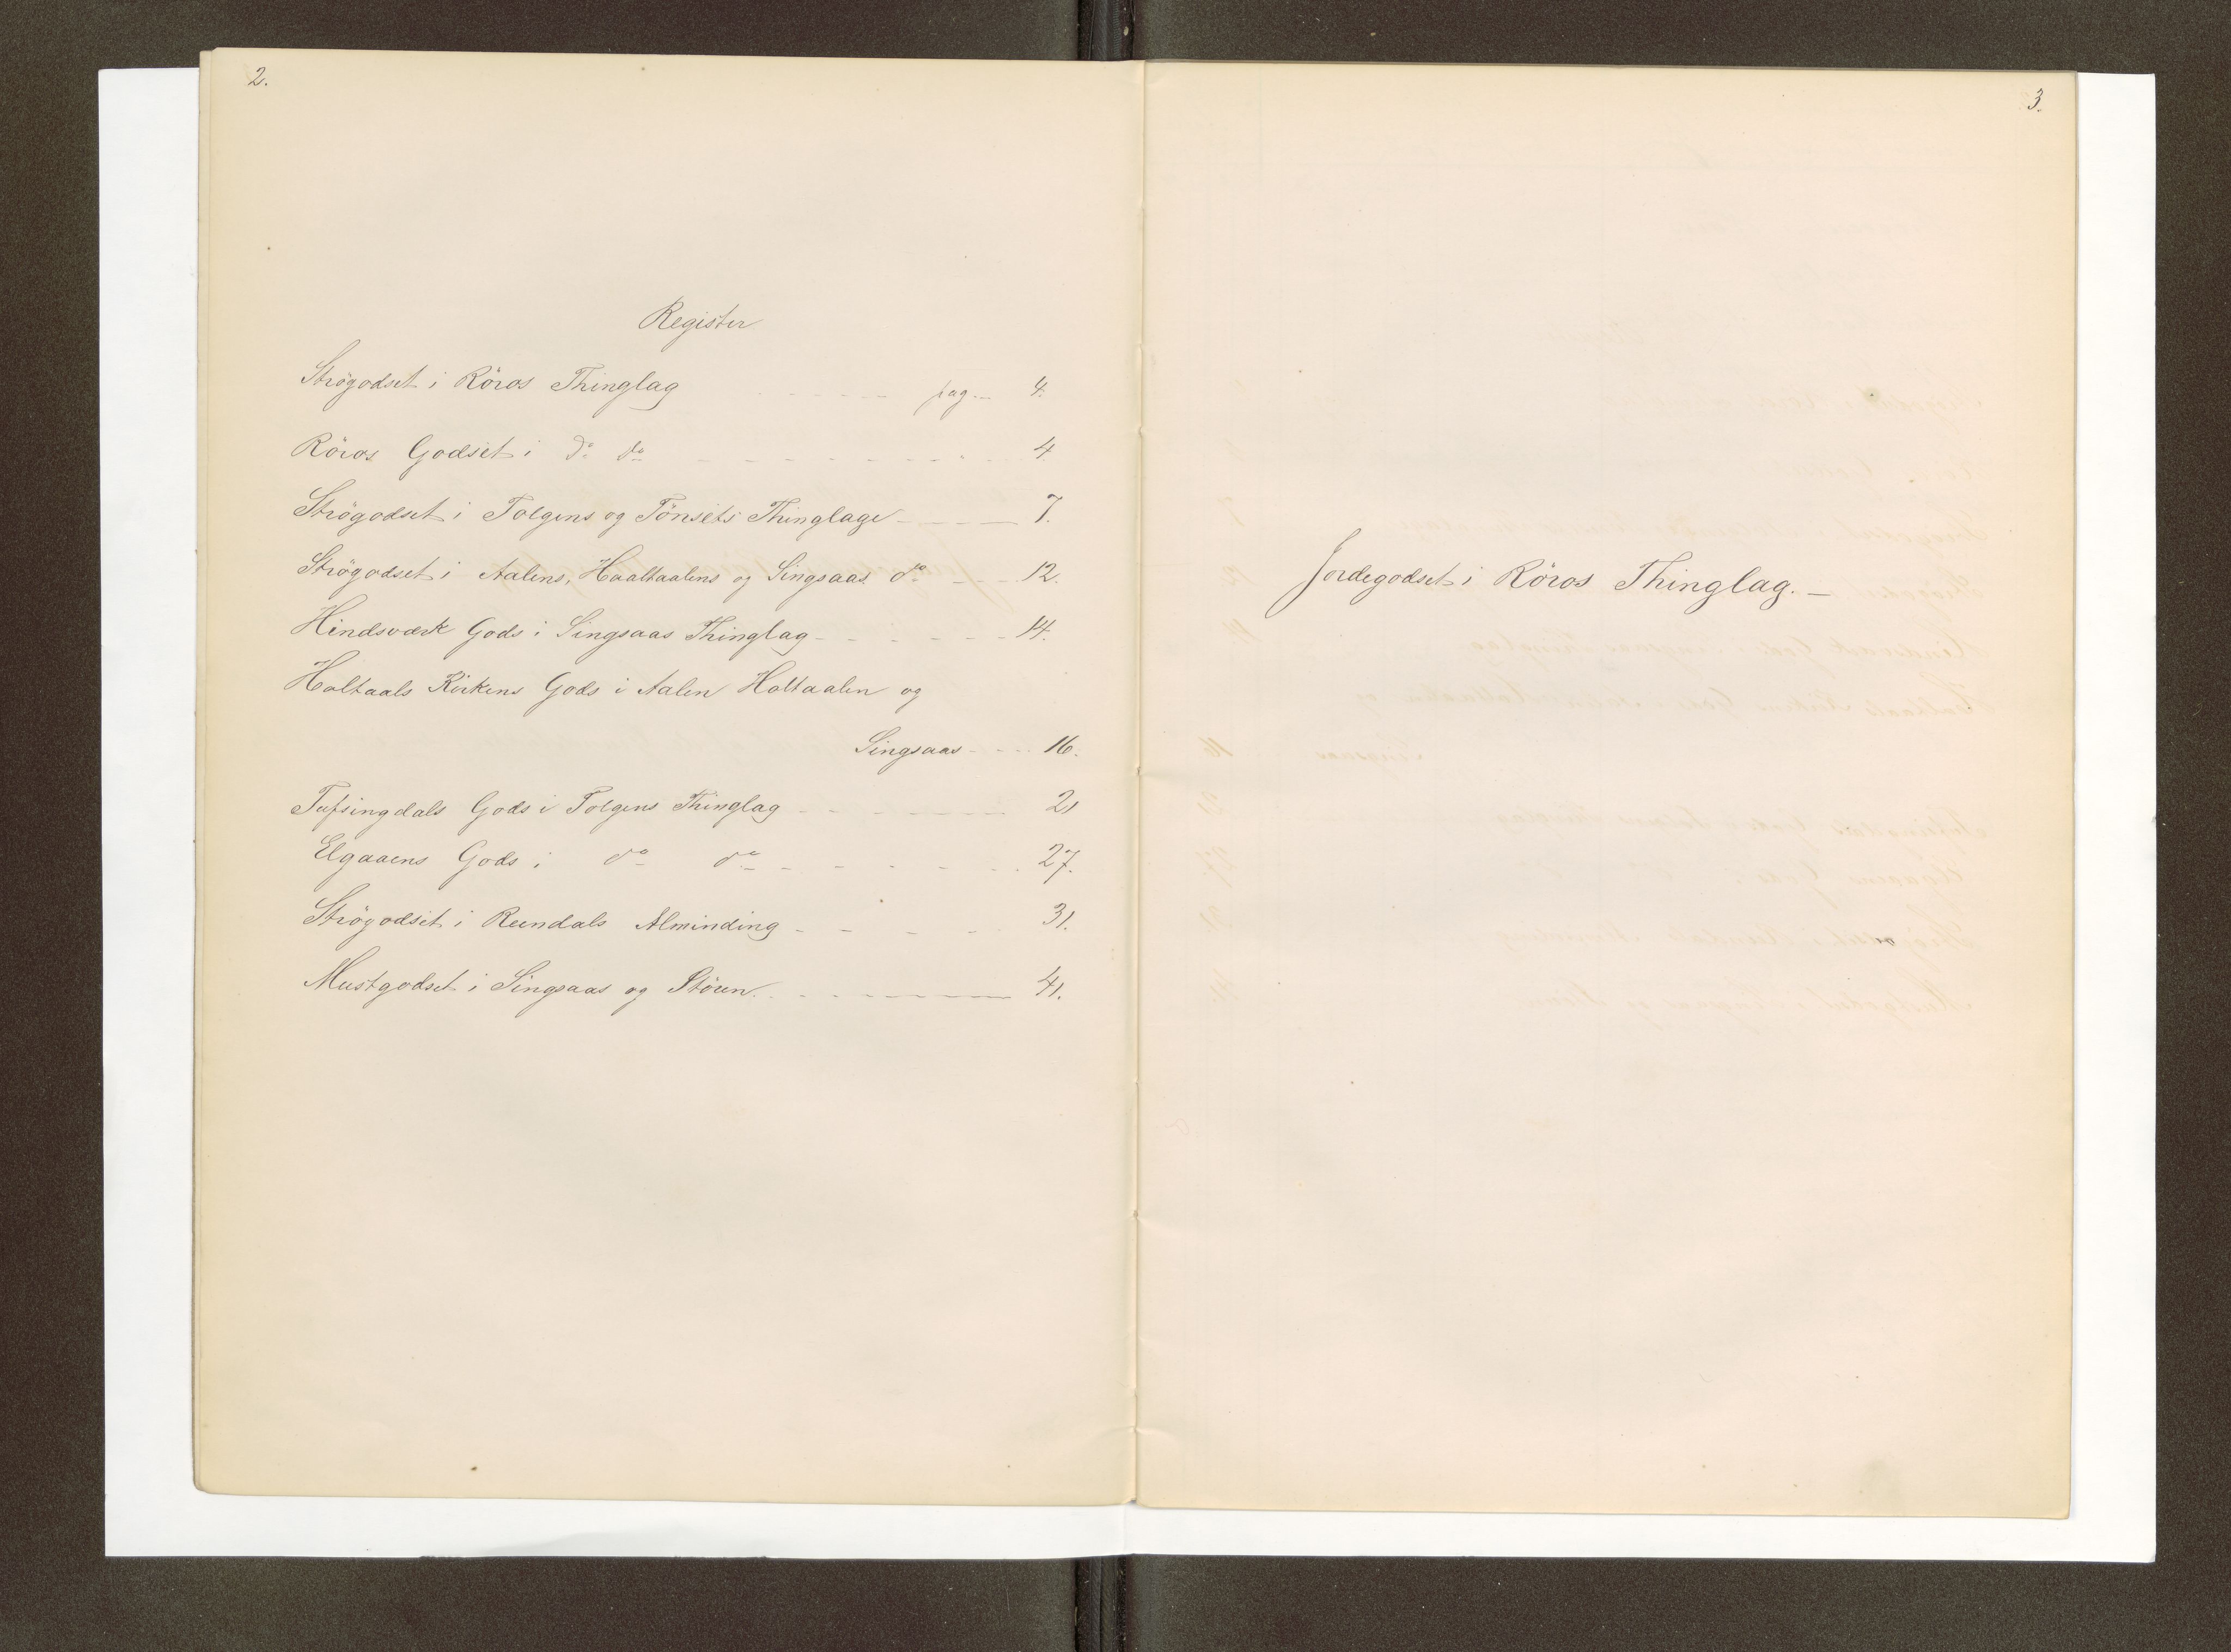 2.
Register
Strögodset i Röros Thinglag - - - - - - pag. - 4.
Röros Godset i do do - - - - - - - - - - - 4
Strögodset i Tolgens og Tönsets Thinglage - - - 7.
Strögodset i Aalens, Haaltaalens og Singsaas do - - - 12.
Hindsværk Gods i Singsaas Thinglag - - - - - - - 14.
Holtaals Kirkens Gods i Aalen Holtaalen og
Singsaas - - - - 16.
Tufsingdals Gods i Tolgens Thinglag - - - - - - - 21
Elgaaens Gods i do do - - - - - - 27.
Strögodset i Rundals Alminding - - - - 31.
Mustgodset i Singsaas og Stören. - - - - - - - 41.
3.
Jordegodset i Röros Thinglag. -